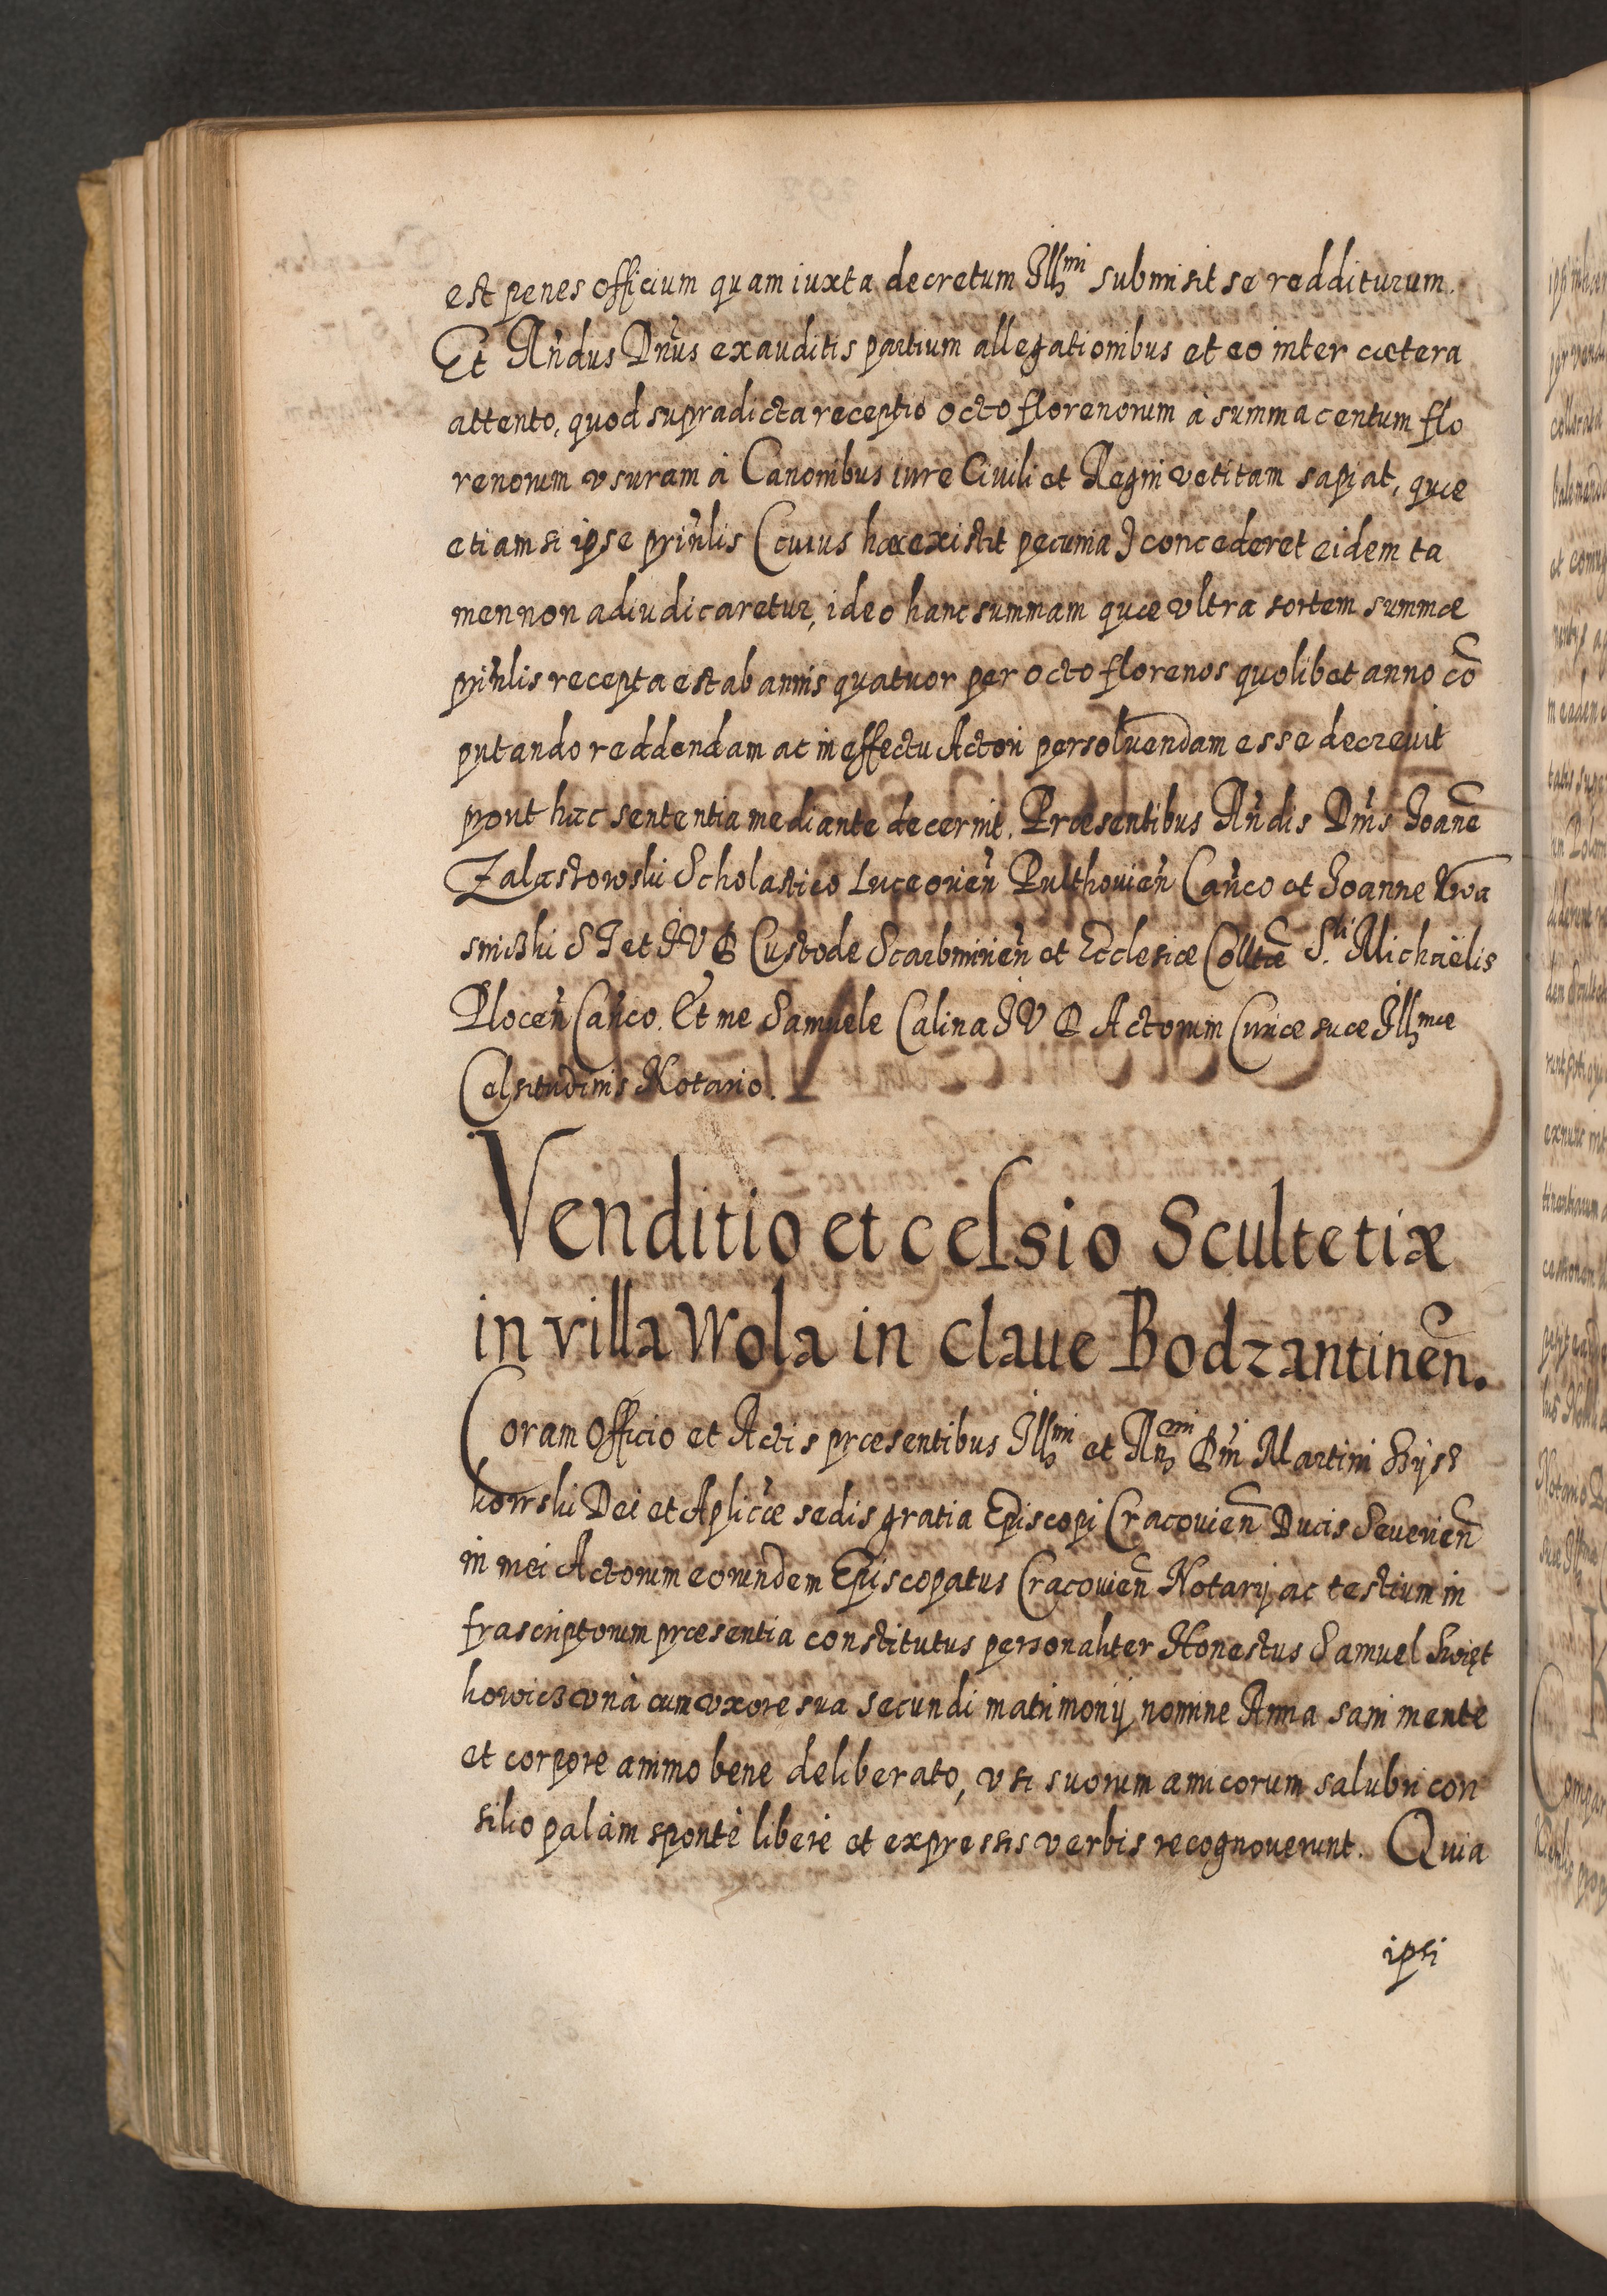 est penes officium quam iuxta decretum Illmi submisit se redditurum.
Et Rndus Dnus exauditis partium allegationibus et eo inter cætera
attento, quod supradicta receptio octo florenorum à summa centum flo
renorum vsuram à Canonibus iure Ciuili et Regni vetitam sapiat, quæ
etiam si ipse prinlis (cuius hæc existit pecunia) concederet eidem ta
men non adiudicaretur, ideo hanc summam quæ vltra sortem summæ
prinlis recepta est ab annis quatuor per octo florenos quolibet anno cõ
putando reddendam ac in effectu Actori persoluendam esse decreuit
prout hac sententia mediante decernit. Præsentibus Rndis Dnis Joanẽ
Zalastowski Scholastico Luceorien Pulthouien Canco et Joanne Kwa
sniβki S T et I V D Custode Scarbimirien et Ecclesiæ Colltæ S.ti Michaëlis
Plocen Canco. Et me Samuele Calina I V D Actorum Curiæ suæ Illmæ
Celsitudinis Notario.
Venditio et celsio Scultetiæ
in villa Wola in claue Bodzantineñ.
Coram Officio et Actis præsentibus Illmi et Rnmi Dni Martini Szysz
kowski Dei et Aplicæ sedis gratia Episcopi Cracouien Ducis Seuerien
in mei Actorum eorundem Episcopatus Cracouien Notarij ac testium in
frascriptorum præsentia constitutus personaliter Honestus Samuel Swięt
kowicz vnà cum vxore sua secundi matrimonij nomine Anna sani mente
et corpore animo bene deliberato, vsi suorum amicorum salubri con
silio palàm spontè liberè et expressis verbis recognouerunt. Quia
ipsi